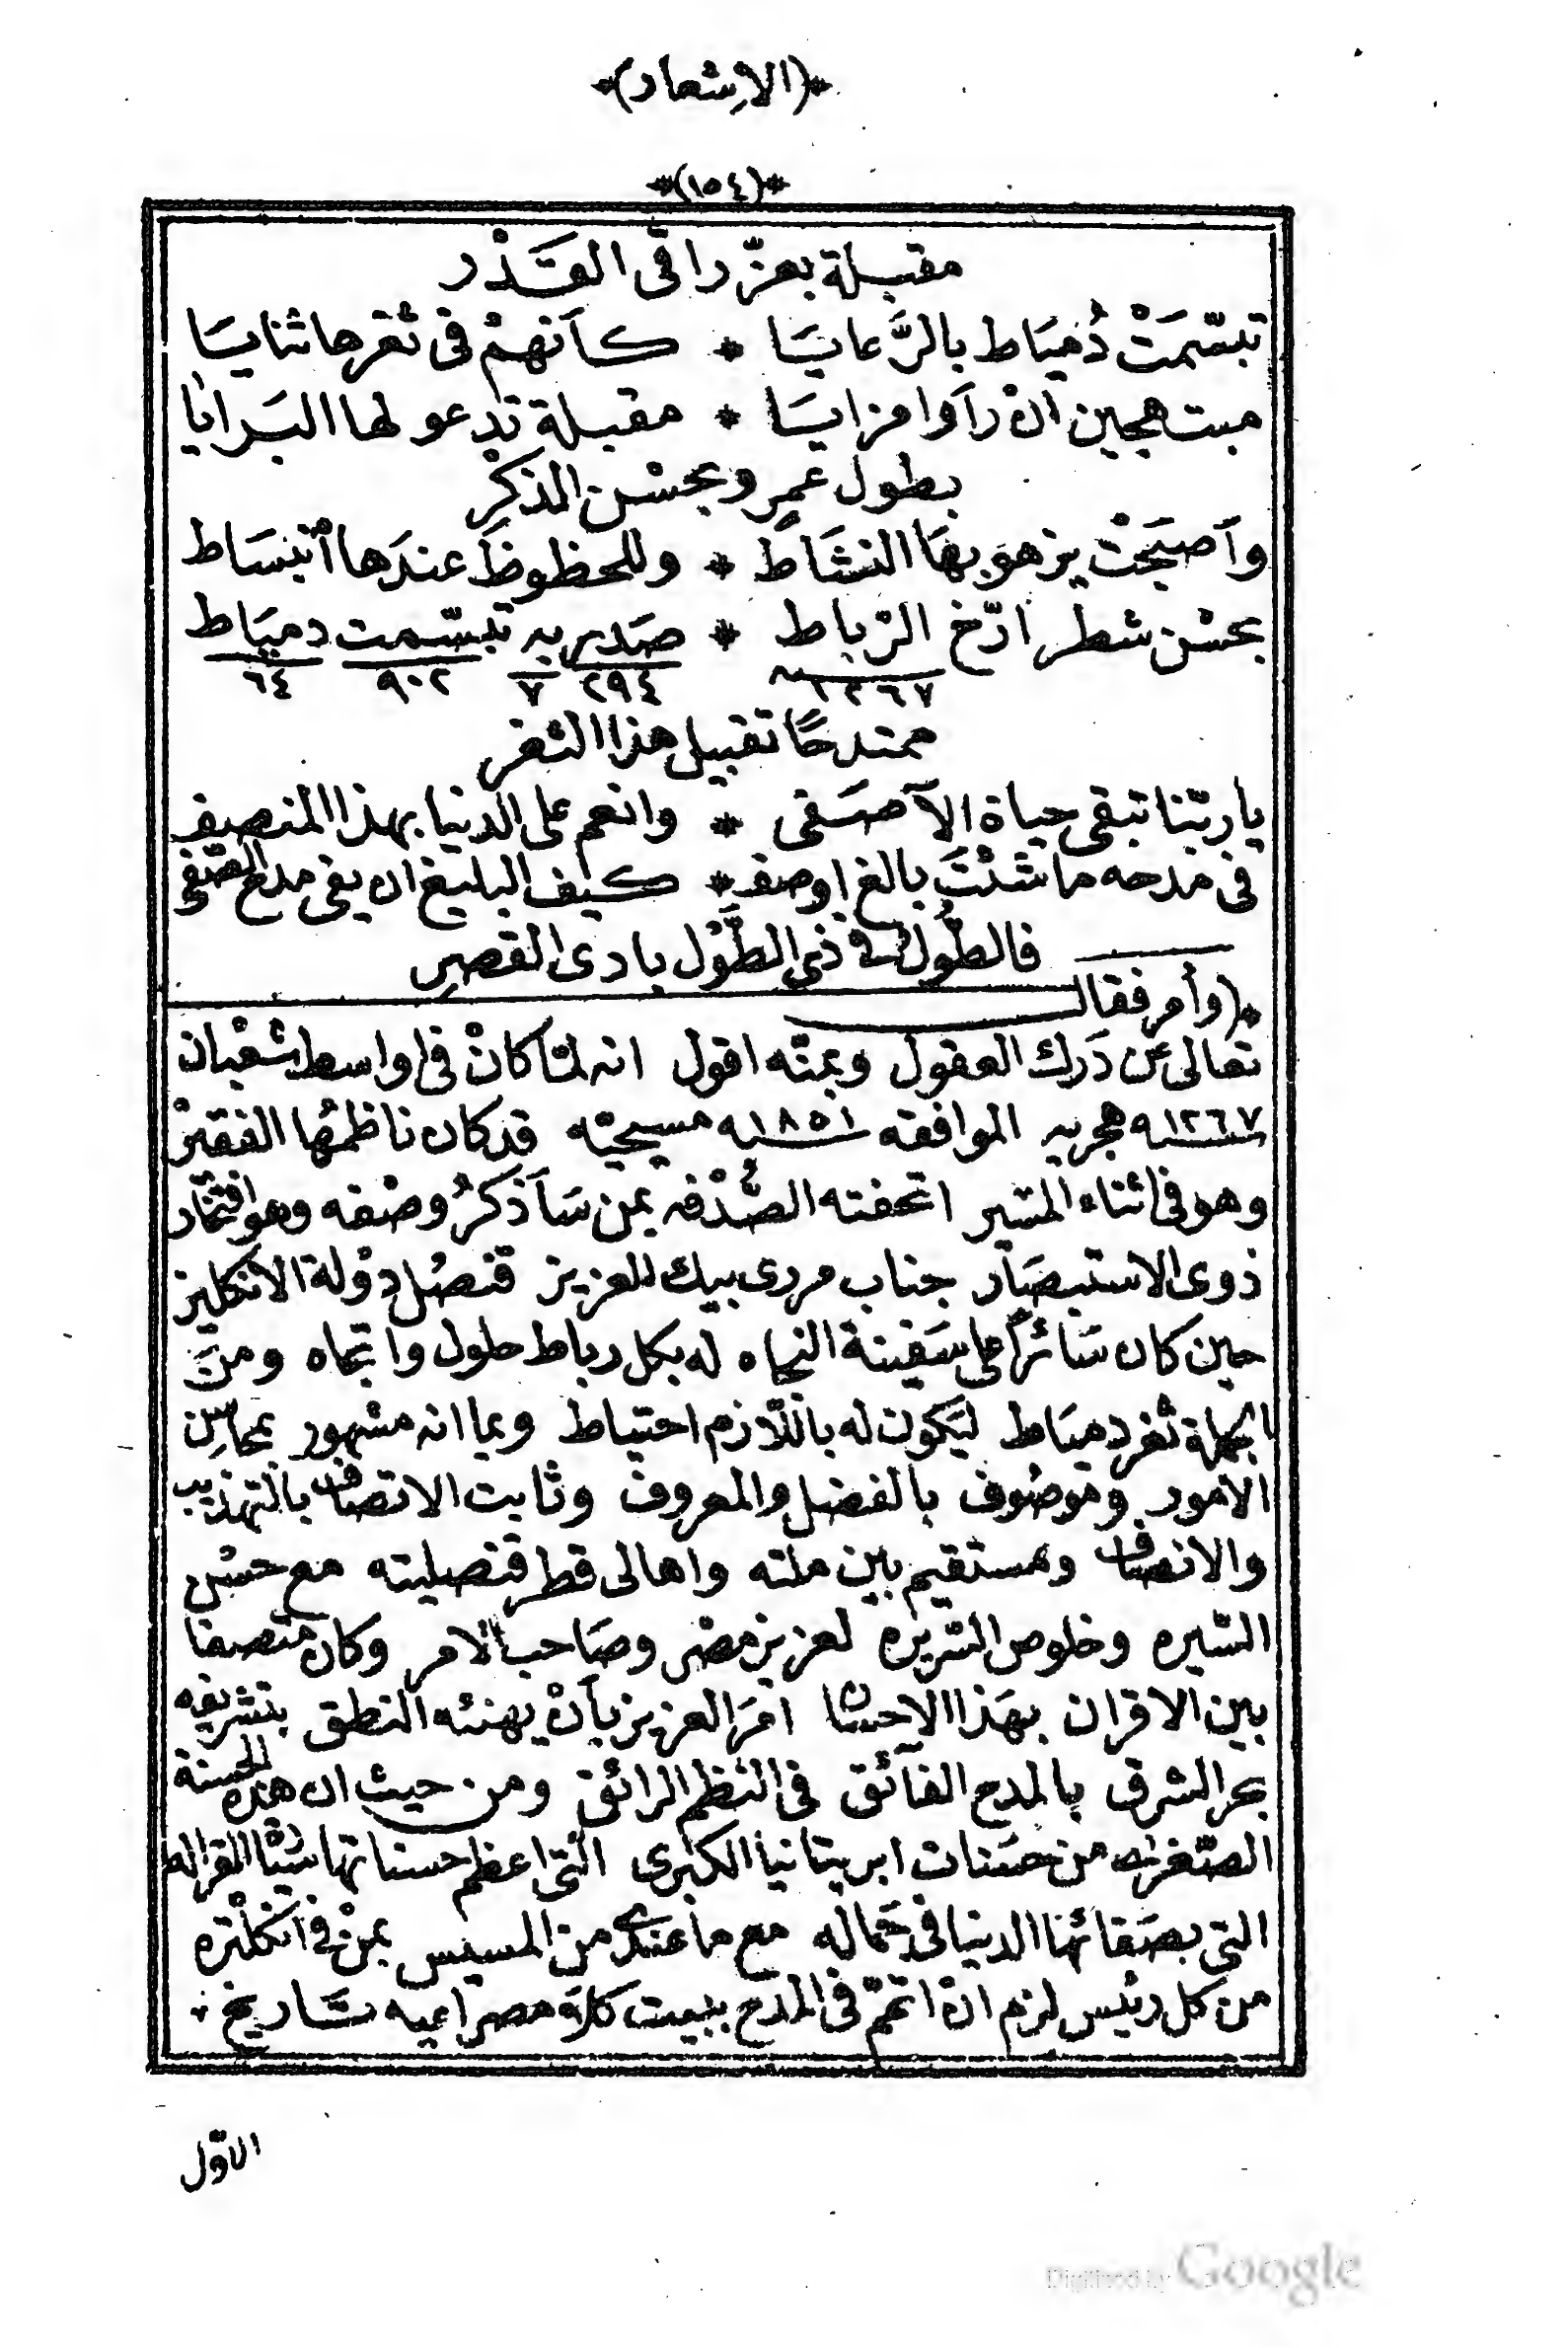 *(الاِشعار)*
*(١٥٤)*
مقبلة بعزّ راقى القَدْر
تبسّمَتْ دُميَاط بالرَّعايَا * كأنهمْ فى ثغرها ثنايَا
مبتهجين انْ رأَوا مزايَا * مقبلة تدعو لها البَرايا
بطول عمرٍ وبحسْن الذكْرِ
وأَصبَحَتْ يزهو بهَا النشَاط * وللحظوظ عندَها انبسَاط
بحسْن شطر ارّخ الرّباط * صَدر به تبسّمت دميَاط
١٢٦٧ ٢٩٤ ٧ ٩٠٢ ٦٤
ممتدحًا تقبيل هذا الثغر
يا ربّنا تبقى حياة الآصَفى * وانعم على الدنيا بهذا المنصِفِ
فى مدحه ما شئتَ بالغ اوصف * كيف البليغ ان يفى مدح الصّفى
فالطُّول فى ذى الطَّوْل بادى القصرِ
*(وأمر فقال
تعالى عن دَرك العقول وبمنّه اقول انه لمّا كانْ فى اواسط شعْبان
سنة ١٢٦٧ هجريه الموافقه سنة ١٨٥١ مسيحيّه قد كان ناظمُها الفقيرْ
وهو فى اثناء المسير اتحفته الصُّدْفه بمن سَأَذكرُ وصْفه وهو افتخار
ذوى الاستبصَار جناب مردى بيك العزيز قنصُل دوْلة الانكليز
حين كان سَائراً على سَفينة النجاه له بكل رباط حلول واتجاه ومنَ
الجملة ثغر دميَاط ليَكون له باللّازم احتياط وبما انه مشهور بمحاسِن
الامور وموصُوف بالفضل والمعروف وثابت الاتصاف بالتهذيب
والانصاف ومستقيم بين ملته واهالى قطر قنصليته مع حسْن
السّيره وخلوص السّريره لعزيز مصْر وصَاحب الامر وكان متصفا
بين الاقران بهَذا الاحسَان امَرَ العزيز بأنْ يهنئه النطق بتشريفه
بحر الشرق بالمدح الفآئق فى النظم الرائق ومن حيث ان هذه الحسنة
الصّغرىَ من حسَنات ابريتانيا الكبرى التى اعظم حسناتها القراله
التى بصَفائها الدنيا فى جَماله مع ما عندى من المسيس بمنْ فى انكلْتره
من كل رئيس لزم انْ اتمّ فى المدح ببيت كلّه مصراعيه تَاريخ
الاوّل
Digitized by Google